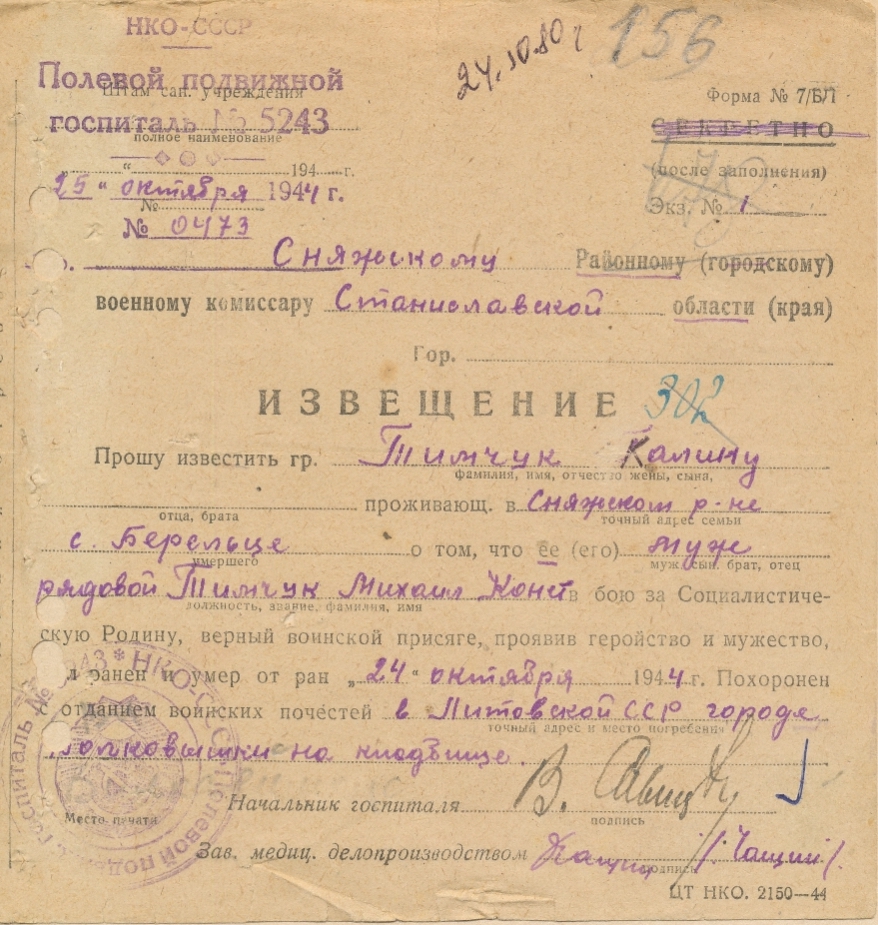 НКО-СССР
Полевой подвижной
Штам сан. учреждения
госпиталь № 5243
полное наименование
24.10.80 г
156
Форма № 7/БЛ
СЕКРЕТНО
(после заполнения)
Экз. № 1
„ “ 194 г.
25 „ октября 1944 г.
№
№ 0473
Сняжскому Районному (городскому)
военному комиссару Станиславской области (края)
Гор.
ИЗВЕЩЕНИЕ 302
Прошу известить гр. Тимчук Калину
фамилия, имя, отчество жены, сына,
проживающ. в Сняжском р-не
отца, брата
точный адрес семьи
с. Берельце о том, что ее (его) муж
умершего
муж, сын, брат, отец
рядовой Тимчук Михаил Конст в бою за Социалистиче-
должность, звание, фамилия, имя
скую Родину, верный воинской присяге, проявив геройство и мужество,
л ранен и умер от ран „24“ октября 1944 г. Похоронен
отданием воинских почестей в Литовской ССР городе
точный адрес и место погребения
олковышки на кладбище.
Начальник госпиталя В.
подпись
Место печати
Зав. медиц. делопроизводством /Чащин/.
подпись
ЦТ НКО. 2150—44
НКО-СССР Полевой госпиталь №